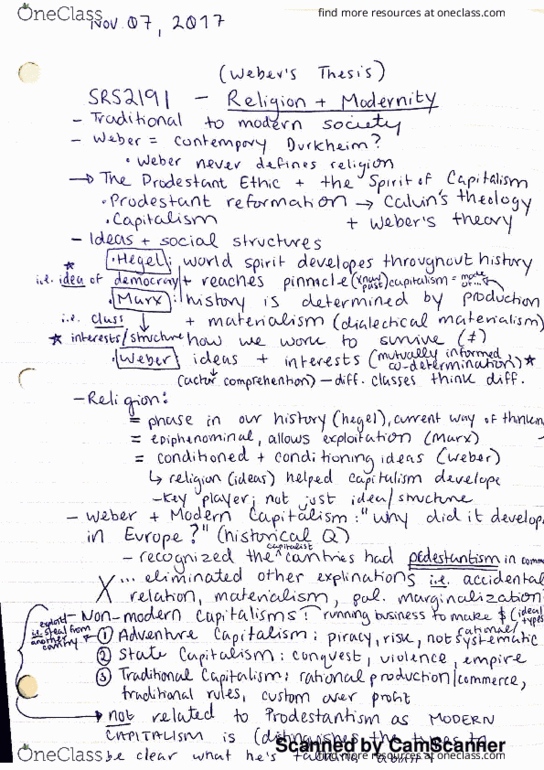 OneClass
find more resources at oneclass.com
Nov. 07, 2017
(Weber's Thesis)
SRS2191 - Religion + Modernity
- Traditional to modern society
- Weber = contempory Durkheim?
• Weber never defines religion
→ The Prodestant Ethic + the Spirit of Capitalism
• Prodestant reformation → Calvin's theology
• Capitalism + Weber's theory
- Ideas + social structures
★ • Hegel: world spirit developes throughout history
i.e. idea of democracy + reaches pinnacle capitalism = mode
• Marx: history is determined by production
i.e. class + materialism (dialectical materialism)
★ interests/structure how we work to survive (≠)
• Weber ideas + interests (mutually informed co-determination) ★
(actor comprehention) - diff. classes think diff.
- Religion:
= phase in our history (hegel), current way of thinkin
= epiphenominal, allows exploitation (Marx)
= conditioned + conditioning ideas (weber)
↳ religion (ideas) helped capitalism develope
- key player; not just idea/structure
- Weber + Modern Capitalism: "why did it develop
in Europe?" (historical Q)
- recognized the capitalist countries had pedestantism in comm
X ... eliminated other explinations i.e. accidental
relation, materialism, pol. marginalization
- Non-modern Capitalisms: running business to make $ (ideal types
exploit i.e. steal from another country ← ① Adventure Capitalism: piracy, risk, not rational/systematic
② State Capitalism: conquest, violence, empire
③ Traditional Capitalism: rational production/commerce,
traditional rules, custom over profit
→ not related to Prodestantism as MODERN
CAPITALISM is (distinguishes the types to
be clear what he's talking about
Scanned by CamScanner
OneClass
find more resources at oneclass.com